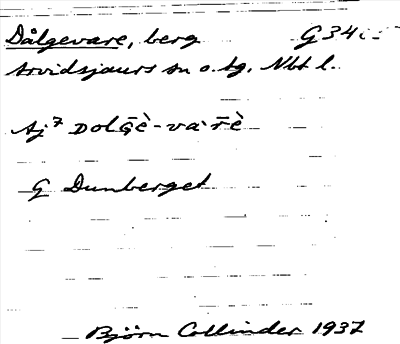 Dålgevare, berg G34
Arvidsjaurs sn o. tg. Nbt l.
Aj⁷ DolG̅è-va·r̅è
G Dunberget
Björn Collinder 1937